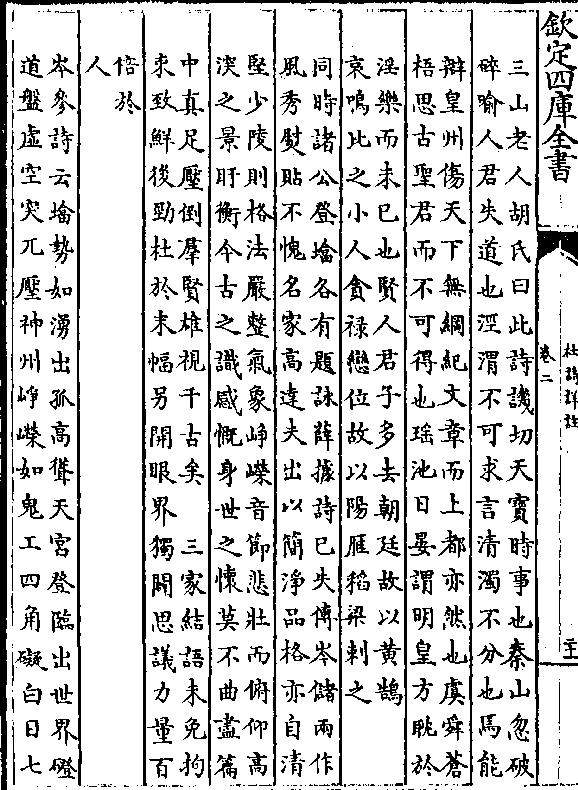 欽定四庫全書
杜詩詳註
卷二
三山老人胡氏曰此詩譏切天寶時事也秦山忽破
碎喻人君失道也涇渭不可求言清濁不分也焉能
辯皇州傷天下無綱紀文章而上都亦然也虞舜蒼
梧思古聖君而不可得也瑤池日晏謂明皇方眈於
淫樂而未已也賢人君子多去朝廷故以黄鵠
哀鳴比之小人貪禄戀位故以陽雁稻粱刺之
同時諸公登塔各有題詠薛據詩已失傳岑儲兩作
風秀熨貼不愧名家高達夫出以簡淨品格亦自清
堅少陵則格法嚴整氣象峥嶸音節悲壯而俯仰高
深之景盱衡今古之識感慨身世之懷莫不曲盡篇
中真足壓倒羣賢雄視千古矣　三家結語未免拘
束致鮮後勁杜於末幅另開眼界獨闢思議力量百
倍於
人
岑參詩云塔勢如湧出孤高聳天宫登臨出世界磴
道盤虚空突兀壓神州峥嶸如鬼工四角礙白日七